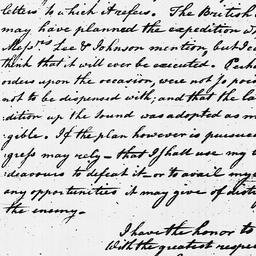 letters to which it refers. The British
may have planned the expedition
Messrs Lee & Johnson mention, but I
think that it will ever be executed.
orders upon the occasion, were not so
not to be dispensed with, and that the
dition up the Sound was adopted as
gible. If the plan however is pursued
gress may rely - that I shall use my
deavours to defeat it - or to avail
any opportunities it may give of
the enemy.
I have the honor to
With the greatest